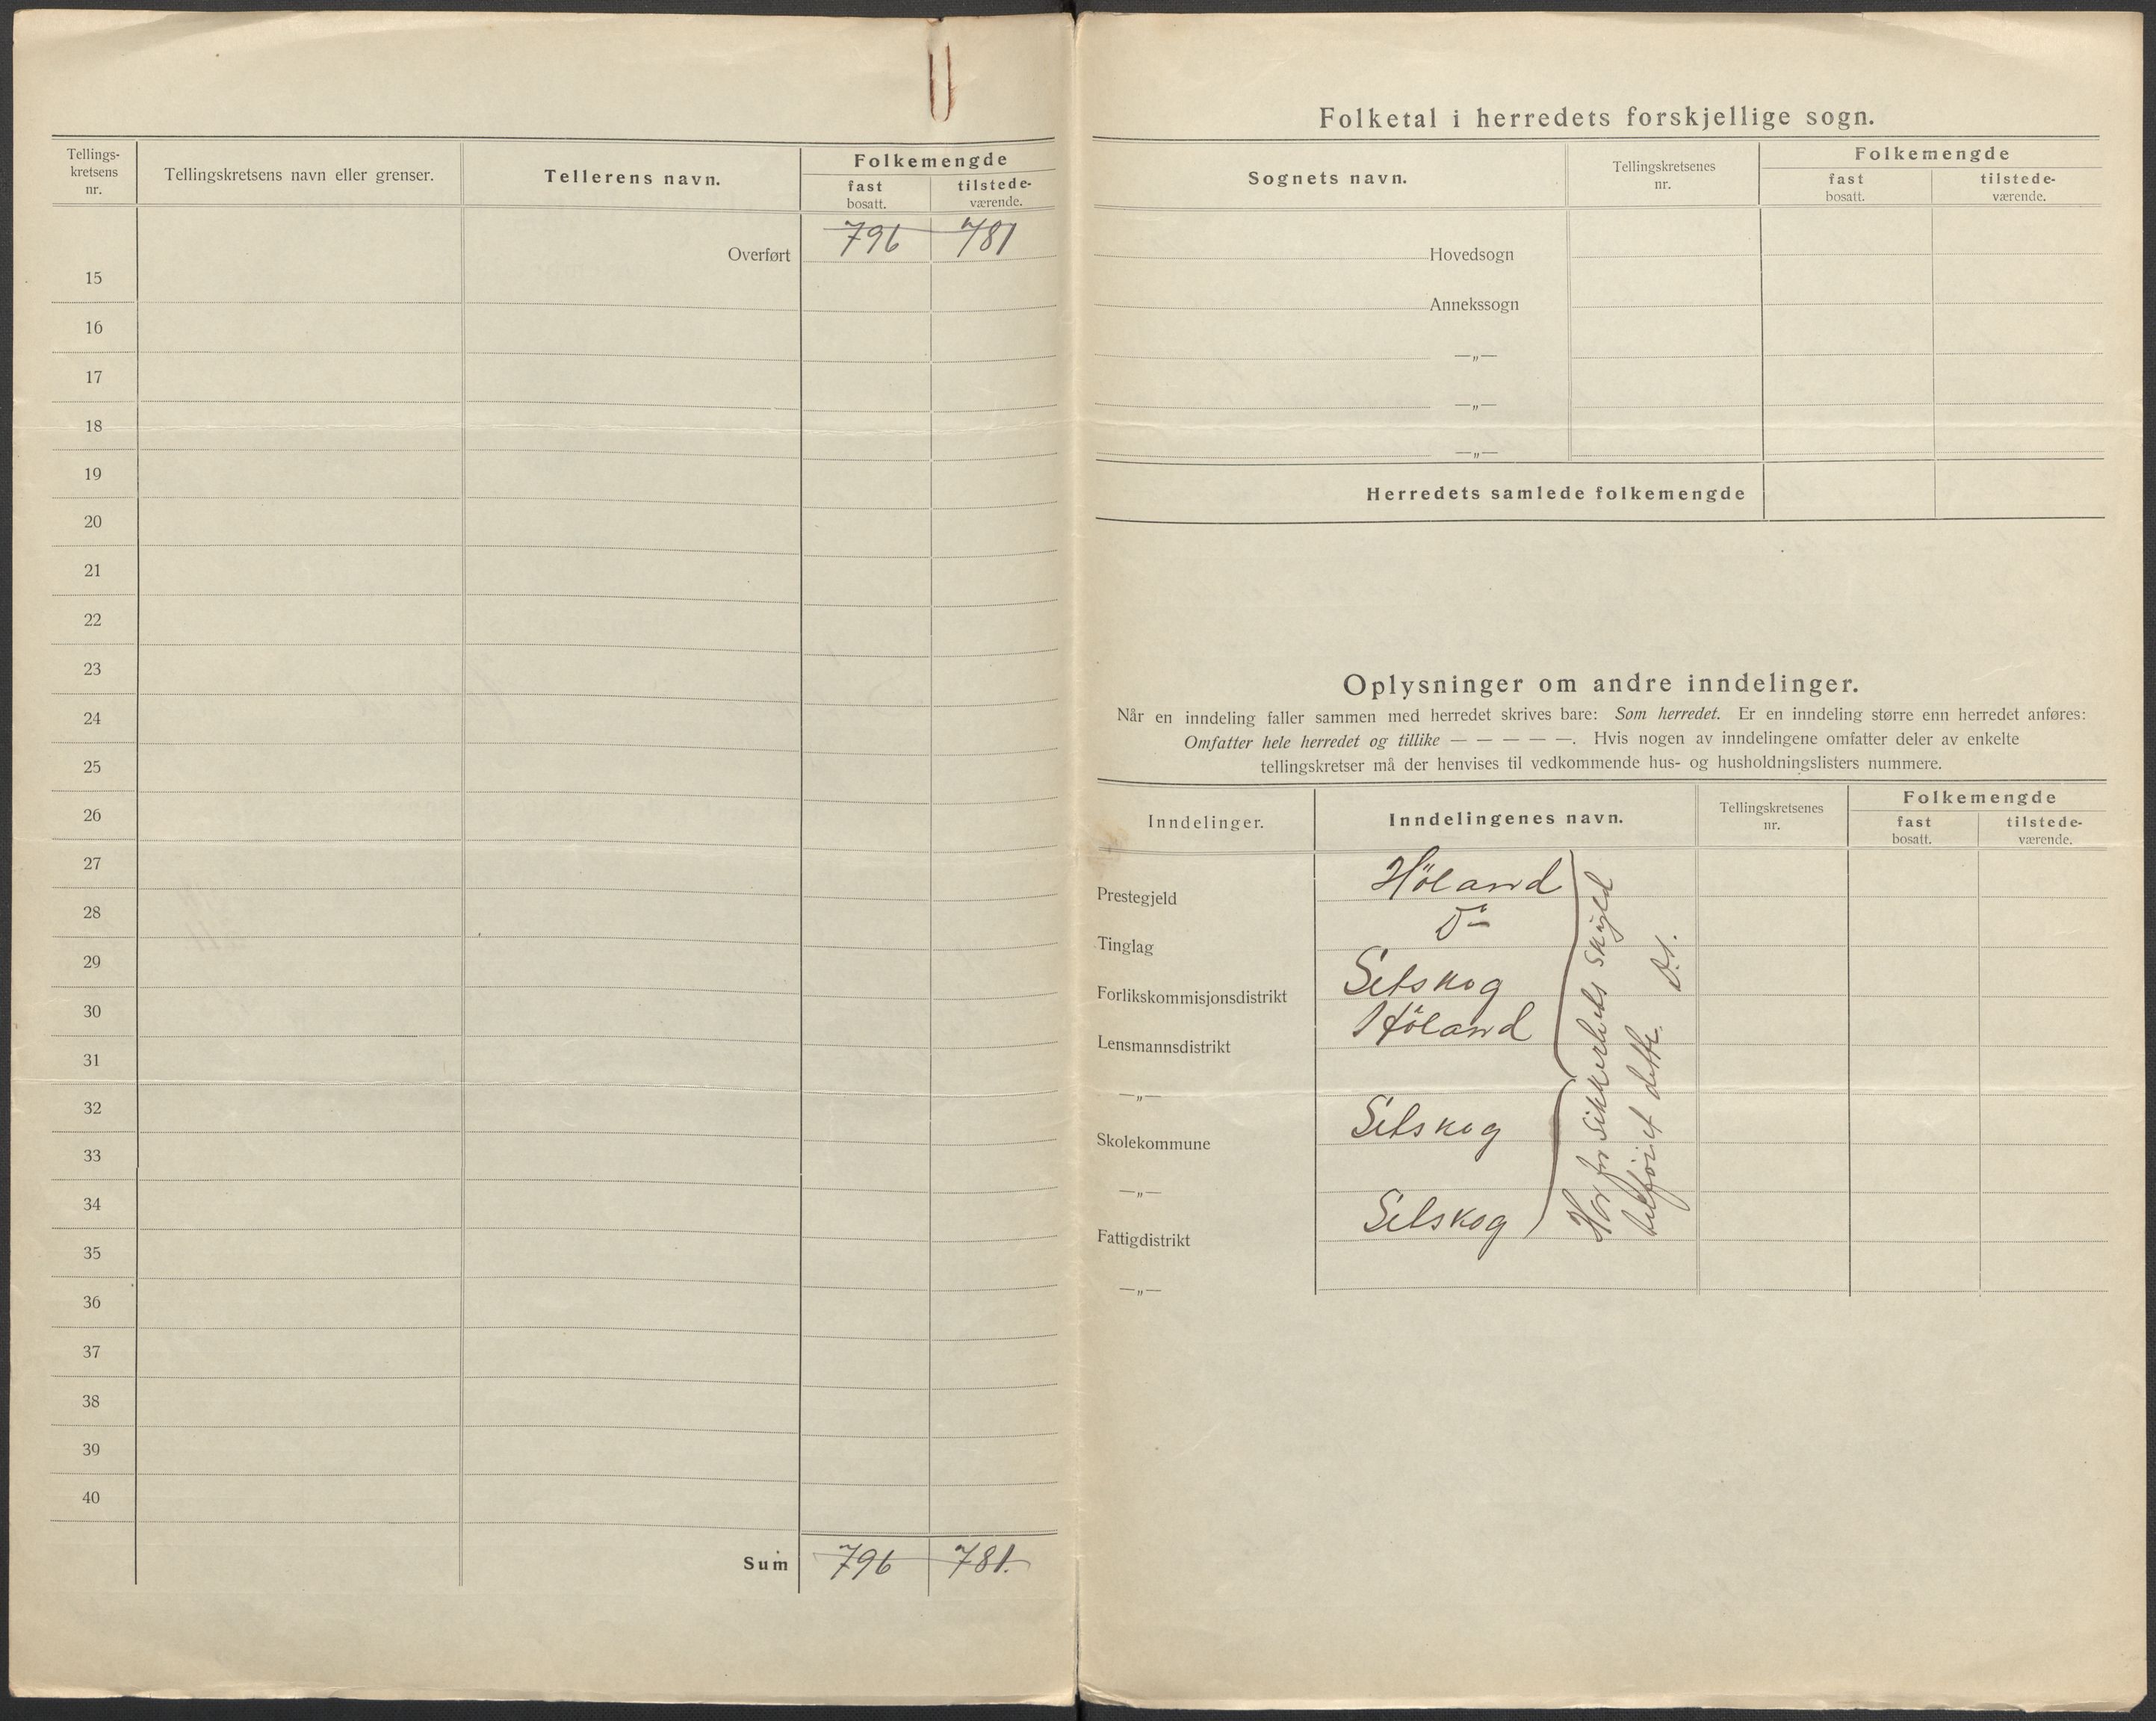 Tellings-
kretsens
nr.
Tellingskretsens navn eller grenser.
Tellerens navn.
Folkemengde
fast
bosatt.
tilstede-
værende.
Overført 796 781
15
16
17
18
19
20
21
22
23
24
25
26
27
28
29
30
31
32
33
34
35
36
37
38
39
40
Sum 796 781.
Folketal i herredets forskjellige sogn.
Sognets navn.
Tellingskretsenes
nr.
Folkemengde
fast
bosatt.
tilstede-
værende.
Hovedsogn
Annekssogn
—„—
—„—
—„—
Herredets samlede folkemengde
Oplysninger om andre inndelinger.
Når en inndeling faller sammen med herredet skrives bare: Som herredet. Er en inndeling større enn herredet anføres:
Omfatter hele herredet og tillike — — — — —. Hvis nogen av inndelingene omfatter deler av enkelte
tellingskretser må der henvises til vedkommende hus- og husholdningslisters nummere.
Inndelinger.
Inndelingenes navn.
Tellingskretsenes
nr.
Folkemengde
fast
bosatt.
tilstede-
værende.
Prestegjeld Höland
Tinglag Do
Forlikskommisjonsdistrikt Setskog
Lensmannsdistrikt Höland
—„—
Skolekommune Setskog
—„—
Fattigdistrikt Setskog
—„—
Har for sikkerhets skyld
tilföiet dette.